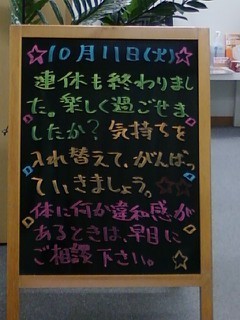 ☆10月11日(火)☆
連休も終わりまし
た。楽しく過ごせま
したか?気持ちを
入れ替えて、がんばっ
ていきましょう。☆☆
体に何か違和感が
あるときは、早目に
ご相談下さい。☆